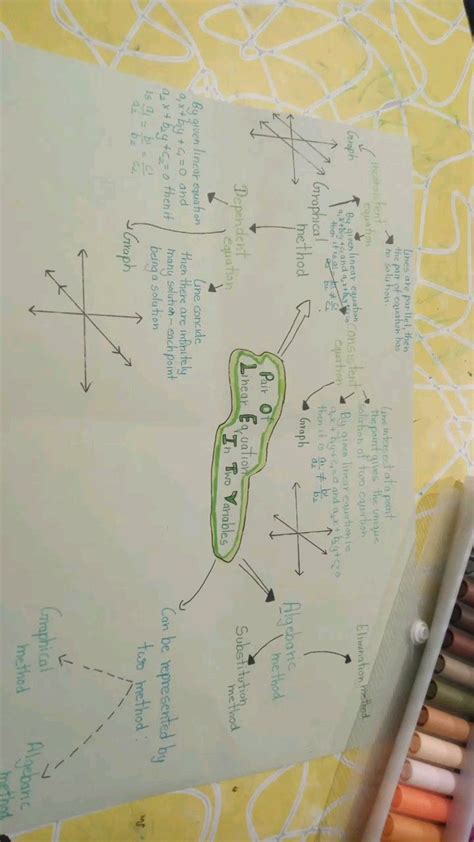 Pair Of
Linear Equation
In Two Variables
Graphical
method
Inconsistent
equation
Lines are parllel, then
the pair of equation has
no solution
By given linear equation
Graph
Consistent
equation
Line intersect at a point
the point gives the unique
solution of two equation
By given linear equation is
a₁x + b₁y + c₁ = 0 and a₂x + b₂y + c₂ = 0
then it is a₁/a₂ ≠ b₁/b₂
Graph
Dependent
equation
Line concide
then there are infinitely
many solution - each point
being a solution
By given linear equation
a₁x + b₁y + c₁ = 0 and
a₂x + b₂y + c₂ = 0 then it
is a₁/a₂ = b₁/b₂ = c₁/c₂
Graph
Algebaric
method
Elimination method
Substitution
method
Can be represented by
two method :
Graphical
method
Algebaric
method